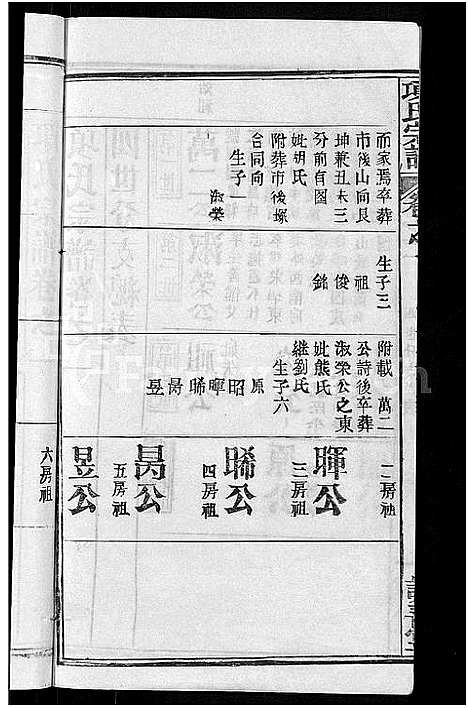 項氏宗譜
而家焉卒葬
市後山向艮
坤兼丑未三
分前有圖
妣胡氏
附葬市後塚
合同向
生子一
淑榮
生子三
祖
俊
銘
附載萬二
公詩後卒葬
淑榮公之東
妣熊氏
繼劉氏
生子六
原
昭
暉
晞
昺
昱
二房祖
暉公
三房祖
晞公
四房祖
昺公
五房祖
昱公
六房祖